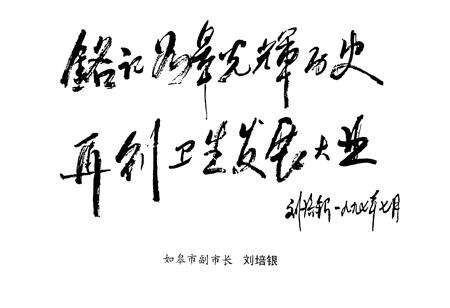 铭记如皋光辉历史
再创卫生发展大业
刘培银一九九七年七月
如皋市副市长 刘培银